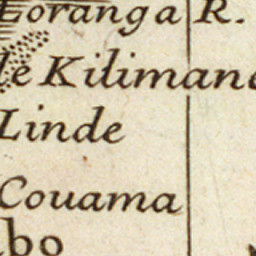 Loranga R.
le Kilimane
Linde
Couama
bo